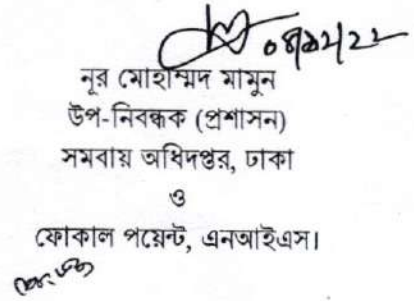 ০৪/১২/২২
নূর মোহাম্মদ মামুন
উপ-নিবন্ধক (প্রশাসন)
সমবায় অধিদপ্তর, ঢাকা
ও
ফোকাল পয়েন্ট, এনআইএস।